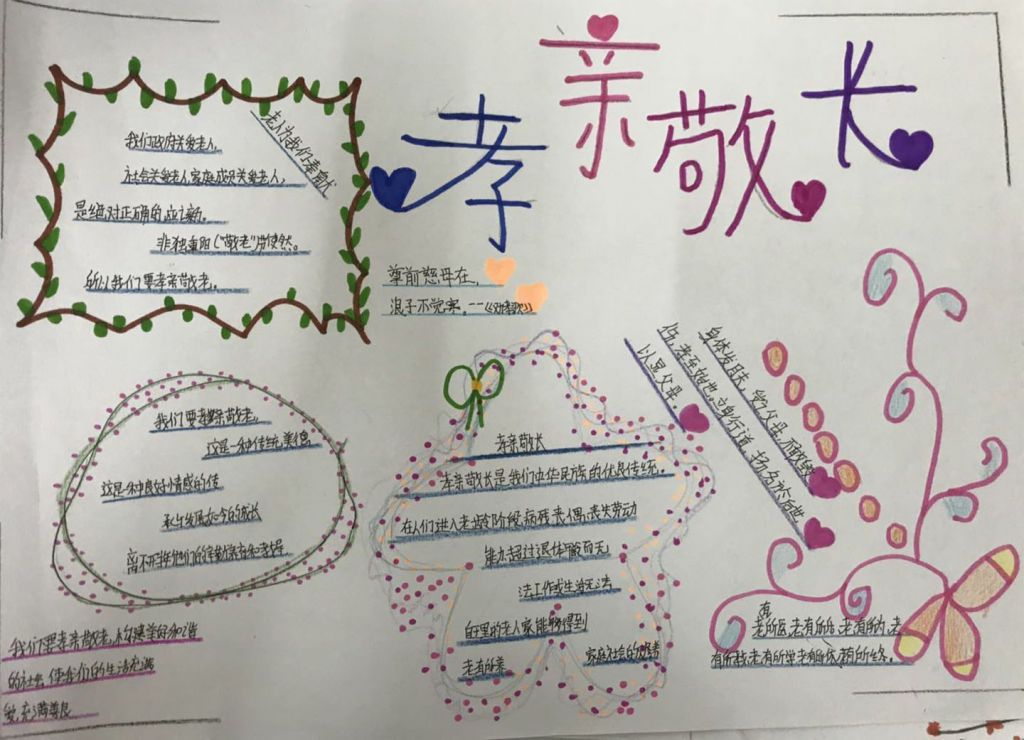 孝亲敬长
老人为我们奉献
我们政府关爱老人,
社会关爱老人,家庭成员关爱老人,
是绝对正确的,应该的。
非独重阳("敬老")片使然。
所以我们要孝亲敬老。
尊前慈母在,
浪子不觉寒。——《劝孝歌》
身体发肤,受之父母,不敢毁
伤,孝至始也,立身行道,扬名於后世,
以显父母。
我们要孝亲敬老,
这是一种传统美德,
这是一种良好情感的传
承与发展,如今的成长
离不开
孝亲敬长
孝亲敬长是我们中华民族的优良传统。
在人们进入老龄阶段,病残丧偶,丧失劳动
能力,超过退休
法工作或生活无法
自理的老人家能够得到
老有所养
家庭社会的
有
老所医,老有所乐,老有所为,老
有所教,老有所学,老有所依,老有所终。
我们要孝亲敬老,构建美好和谐
的社会,使我们的生活充满
爱,充满善良